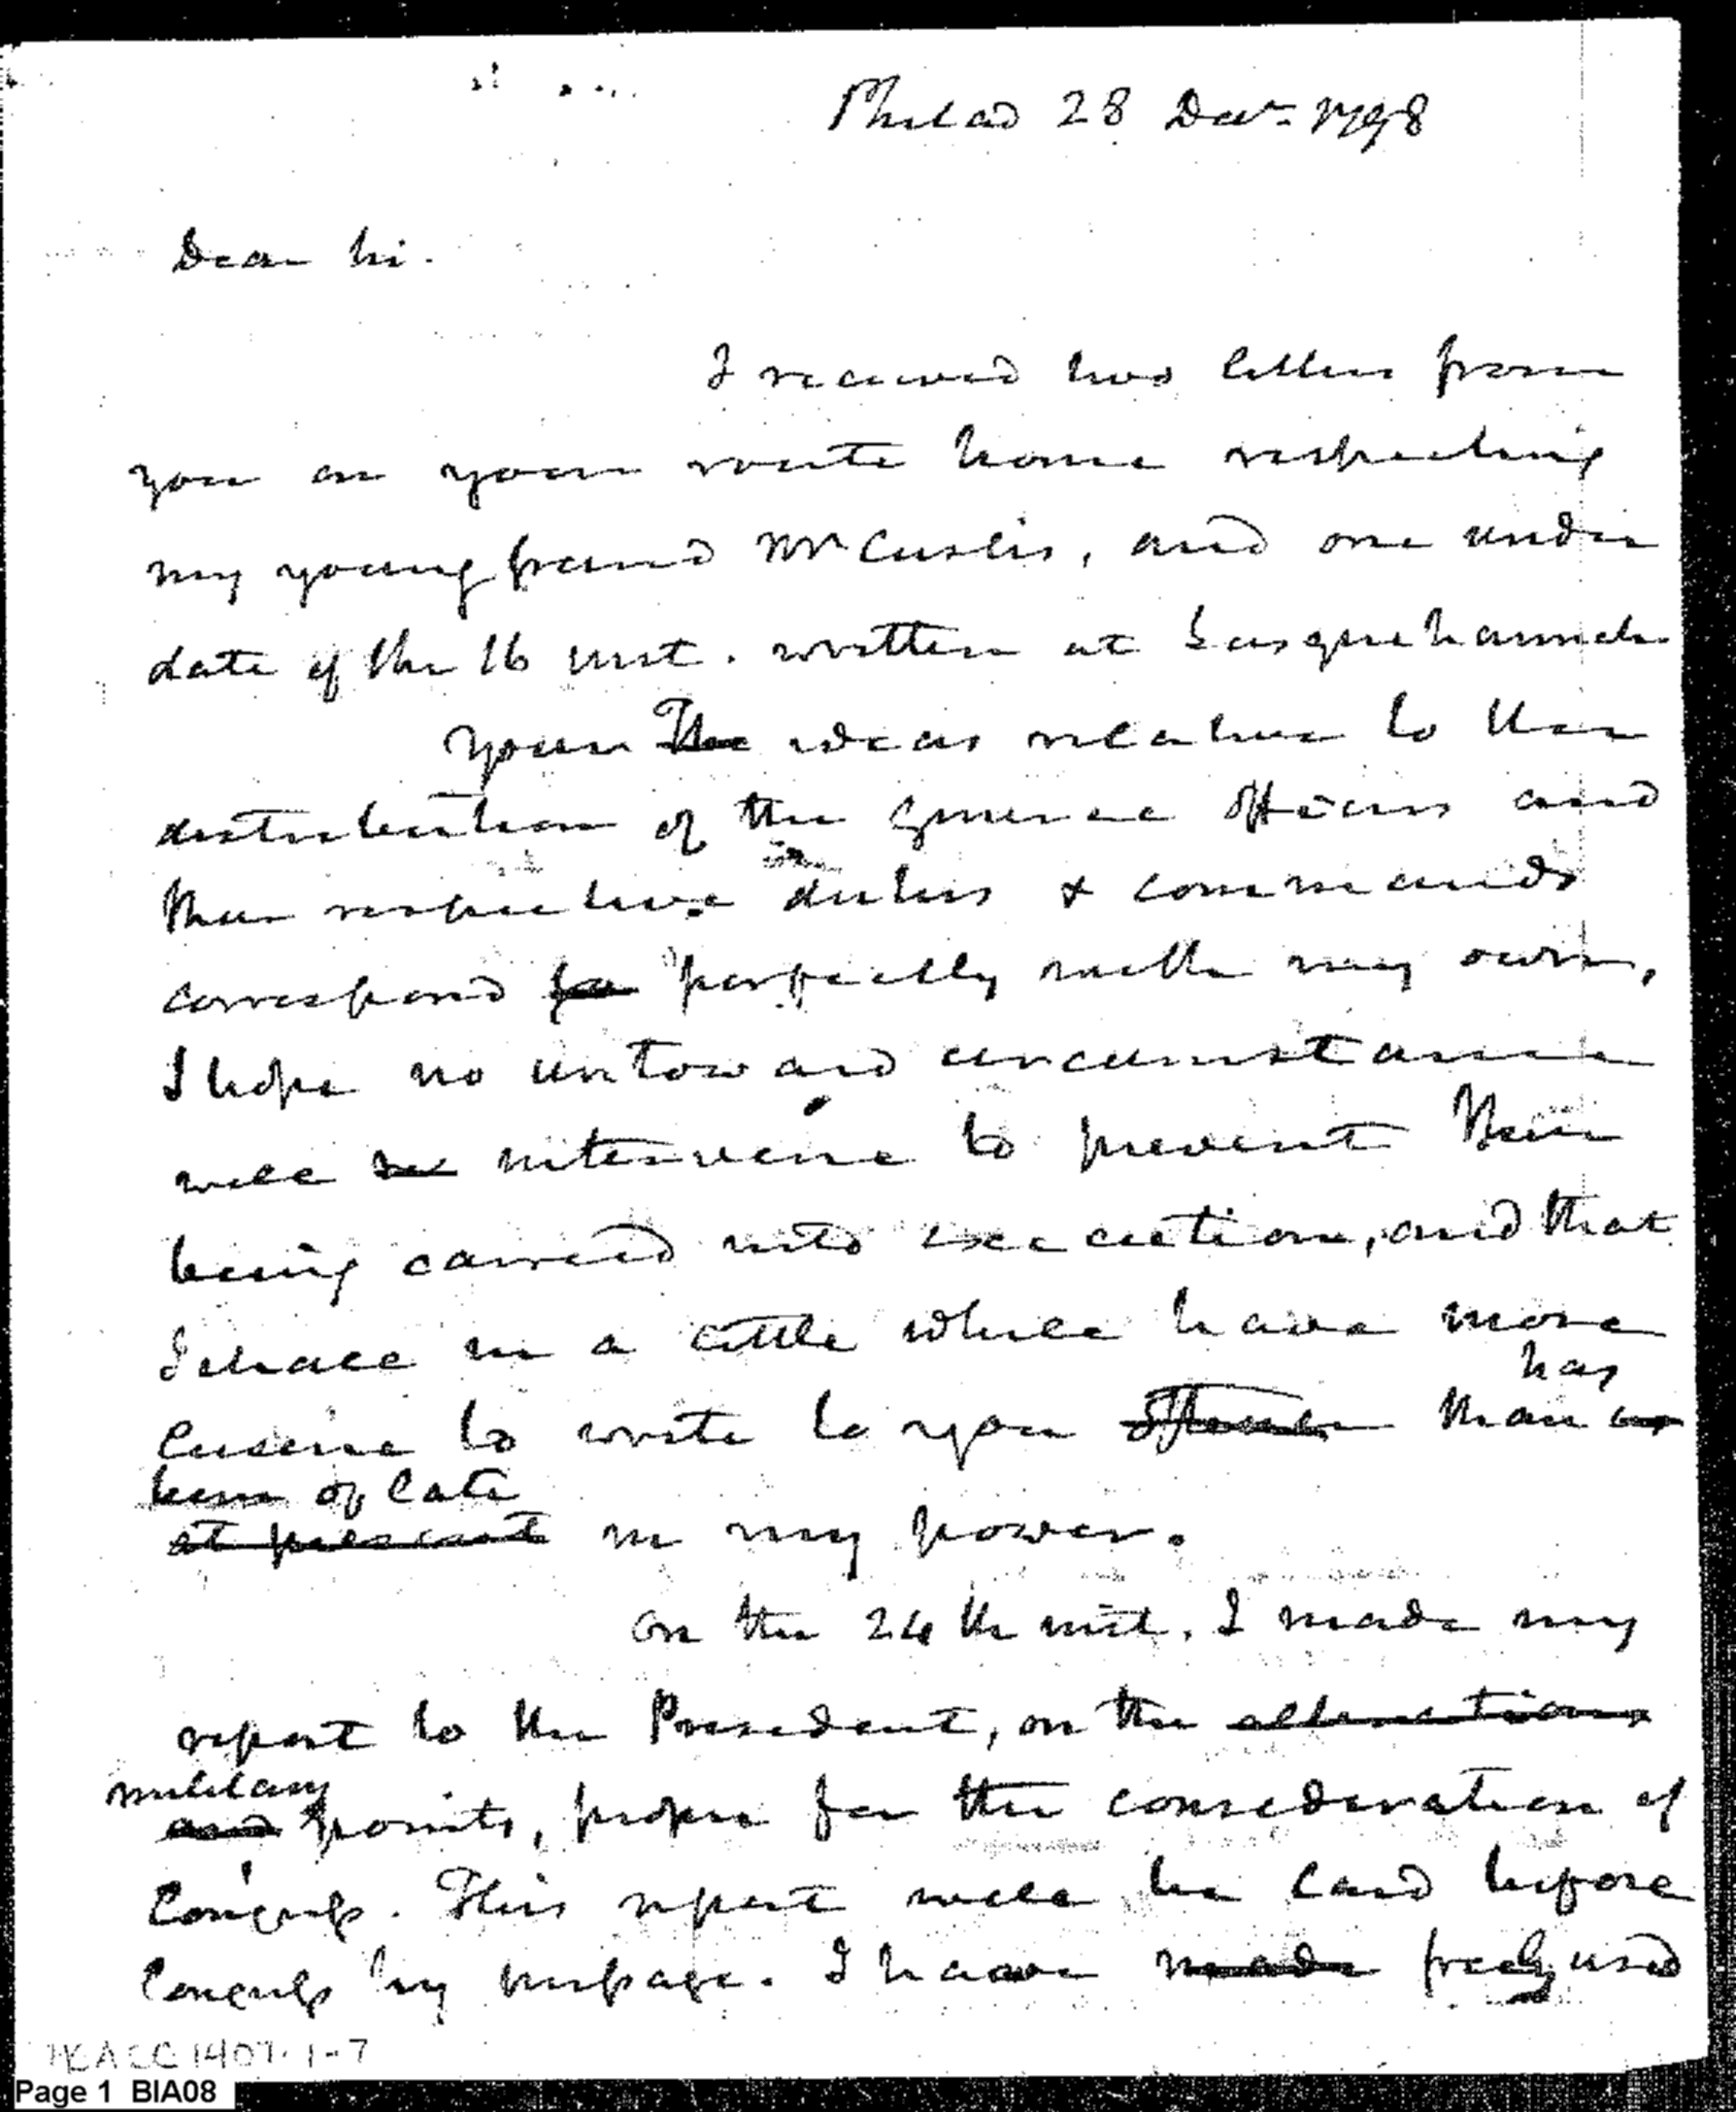 Philad 28 Decr. 1798
Dear Sir.
I received two letters from
you on your route home respecting
my young friend Mr Custis, and one under
date of the 16 inst. written at Susquehannah
Your The ideas relative to the
distribution of the general officers and
their respective duties & commands
correspond so perfectly with my own,
I hope no untoward circumstance
will be intervene to prevent their
being carried into execution, and that
I shall in a little while have more
has
leisure to write to you oftener than is
been of late
at present in my power.
On the 24th inst. I made my
report to the President, on the alterations
military
and points, proper for the consideration of
Congress. This report will be laid before
Congress by message. I have made freely used
HCACC1407.1-7
Page 1 BIA08